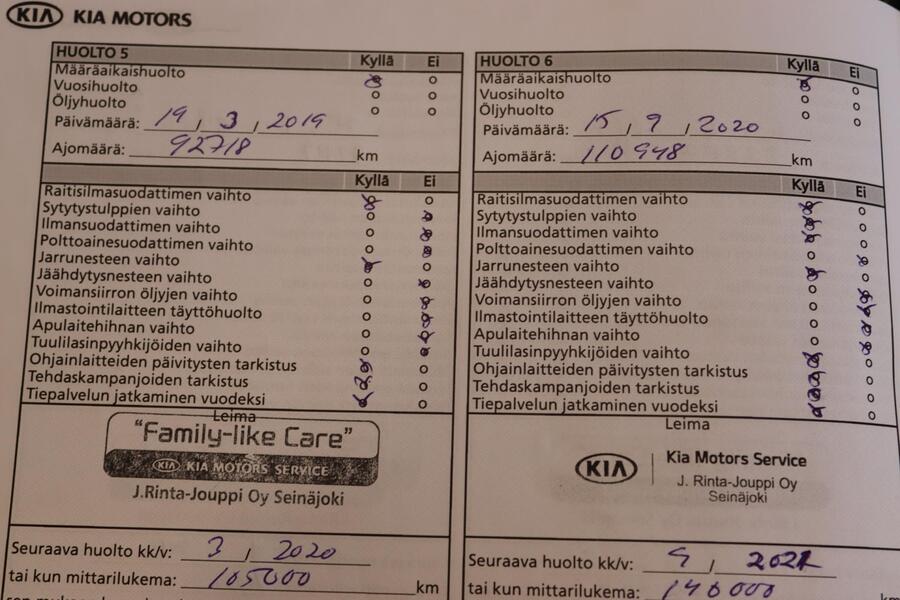 KIA KIA MOTORS
HUOLTO 5 Kyllä Ei
Määräaikaishuolto
Vuosihuolto
Öljyhuolto
Päivämäärä: 19 / 3 / 2019
Ajomäärä: 92718 km
Kyllä Ei
Raitisilmasuodattimen vaihto
Sytytystulppien vaihto
Ilmansuodattimen vaihto
Polttoainesuodattimen vaihto
Jarrunesteen vaihto
Jäähdytysnesteen vaihto
Voimansiirron öljyjen vaihto
Ilmastointilaitteen täyttöhuolto
Apulaitehihnan vaihto
Tuulilasinpyyhkijöiden vaihto
Ohjainlaitteiden päivitysten tarkistus
Tehdaskampanjoiden tarkistus
Tiepalvelun jatkaminen vuodeksi
Leima
"Family-like Care"
KIA KIA MOTORS SERVICE
J.Rinta-Jouppi Oy Seinäjoki
Seuraava huolto kk/v: 3 / 2020
tai kun mittarilukema: 105000 km
HUOLTO 6 Kyllä Ei
Määräaikaishuolto
Vuosihuolto
Öljyhuolto
Päivämäärä: 15 / 9 / 2020
Ajomäärä: 110948 km
Kyllä Ei
Raitisilmasuodattimen vaihto
Sytytystulppien vaihto
Ilmansuodattimen vaihto
Polttoainesuodattimen vaihto
Jarrunesteen vaihto
Jäähdytysnesteen vaihto
Voimansiirron öljyjen vaihto
Ilmastointilaitteen täyttöhuolto
Apulaitehihnan vaihto
Tuulilasinpyyhkijöiden vaihto
Ohjainlaitteiden päivitysten tarkistus
Tehdaskampanjoiden tarkistus
Tiepalvelun jatkaminen vuodeksi
Leima
KIA Kia Motors Service
J. Rinta-Jouppi Oy
Seinäjoki
Seuraava huolto kk/v: 9 / 2021
tai kun mittarilukema: 140000